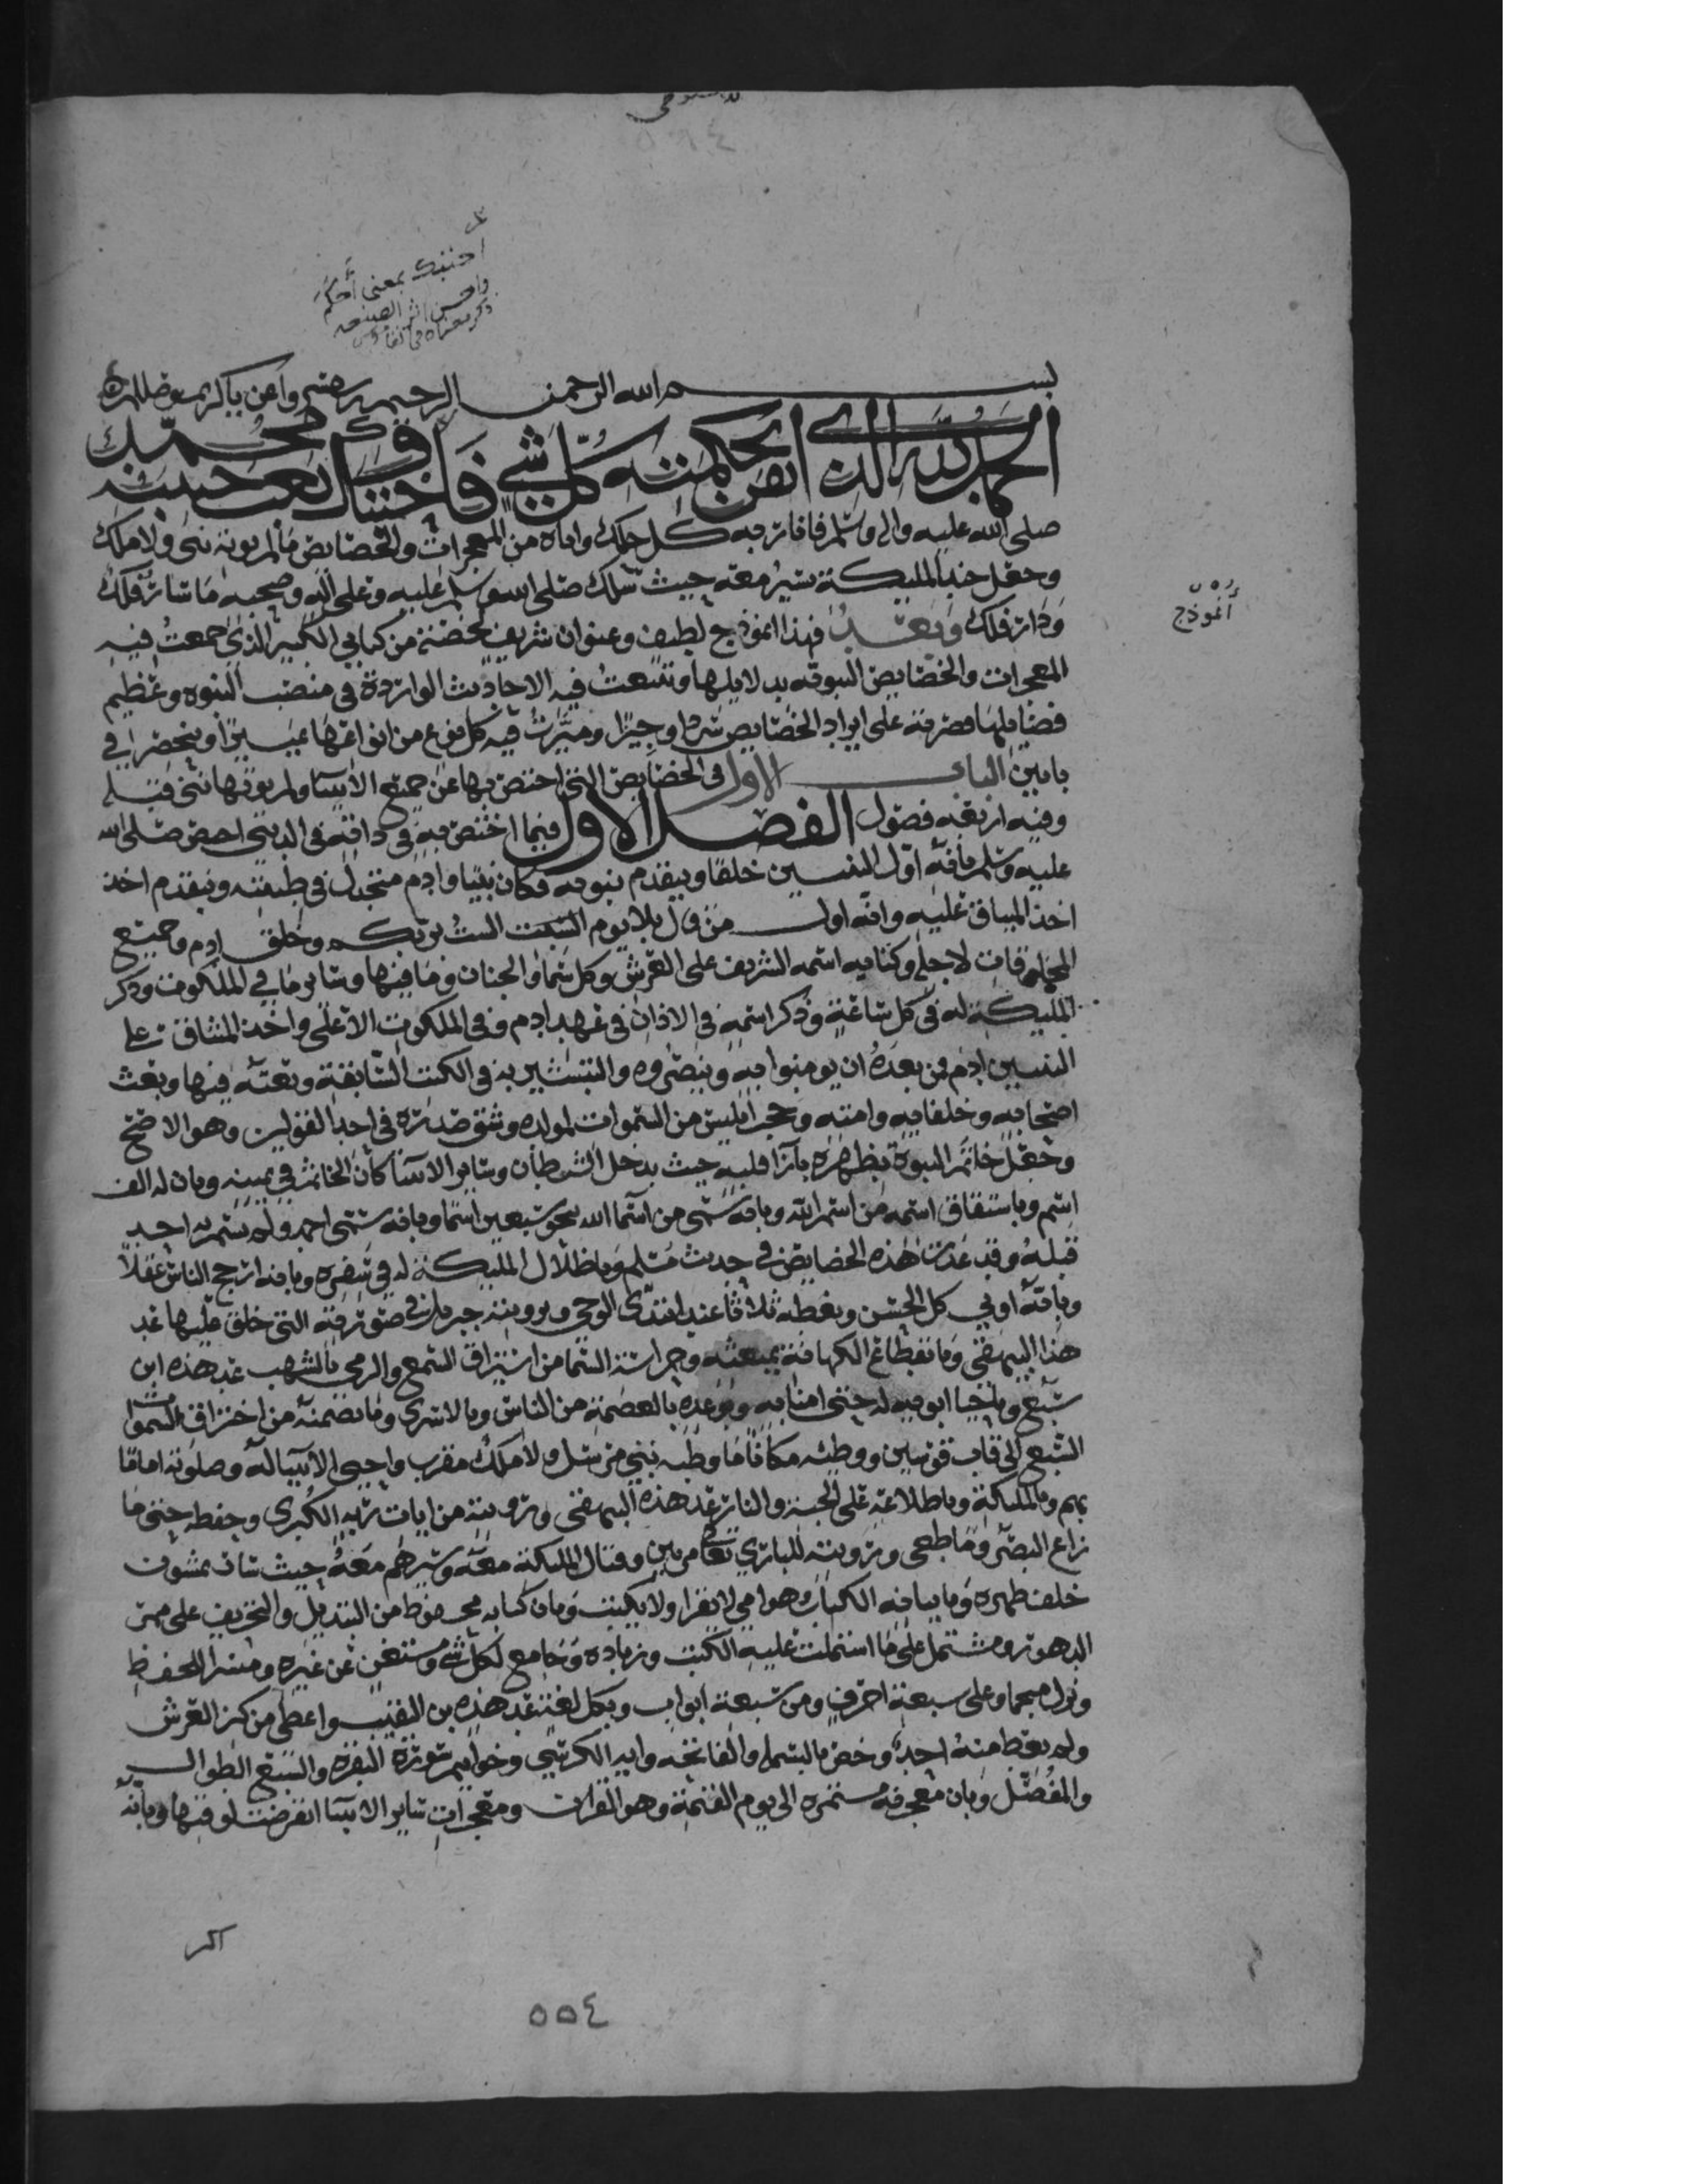 أحتبك بمعنى أحكم
واحسن اثر الصنعه
ذكر معناه في القاموس
بسم الله الرحمن الرحيم رب تمم واعن ياكريم
الحمد لله الذي اتقن بحكمته كل شي فاحتبك وبعث حبيبه محمد
صلى الله عليه واله وسلم فافاز به كل حلك واتاه من المعجزات والخصايص ما لم يوته نبي ولا ملك
وجعل جند المليكة تسير معه حيث سلك صلى الله وسلم عليه وعلى اله وصحبه ما سار فلك
ودار فلك وبعد فهذا انموذج لطيف وعنوان شريف لخصته من كتابي الكبير الذي جمعت فيه
أنموذج
المعجزات والخصايص النبويه بدلايلها وتتبعت فيه الاحاديث الواردة في منصب النبوه وعظيم
فضايلها قصرته على ايراد الخصايص سردا وجيزا وميزت فيه كل نوع من انواعها تمييزا وينحصر في
بابين الباب الاول في الخصايص التي اختص بها عن جميع الانبيا ولم يوتها نبي قبله
وفيه اربعه فصول الفصل الاول فيما اختص به في ذاته في الدنيا اختص صلى الله
عليه وسلم بانه اول النبيين خلقا وبتقدم نبوته فكان نبيا وادم منجدل في طينته وبتقدم اخذ
اخذ الميثاق عليه وانه اول من قال بلا يوم الست بربكم وخلق ادم وجميع
المخلوقات لاجله وكتابه اسمه الشريف على العرش وكل سما والجنان وما فيها وساير ما في الملكوت وذكر
المليكة له في كل ساعة وذكر اسمه في الاذان في عهد ادم وفي الملكوت الاعلى واخذ الميثاق على
النبيين ادم فمن بعده ان يومنوا به وينصروه والتبشير به في الكتب السابقة ونعته فيها ونعت
اصحابه وخلفايه وامته وحجب ابليس من السموات لمولده وشق صدره في احد القولين وهو الاصح
وجعل خاتم النبوة بظهره بازا قلبه حيث يدخل الشيطان وساير الانبيا كان الخاتم في يمينه وبان له الف
اسم وباشتقاق اسمه من اسم الله وبانه سمي من اسما الله بنحو سبعين اسما وبانه سمي احمد ولم يسم به احد
قبله وقد عدت هذه الخصايص في حديث مسلم وباظلال المليكة له في سفره وبانه ارجح الناس عقلا
وبانه اوتي كل الحسن وبغطه ثلاثا عند ابتدى الوحي وبرويته جبريل في صورته التي خلق عليها عد
هذا البيهقي وبانقطاع الكهانة بمبعثه وحراسة السما من استراق السمع والرمي بالشهب عد هذه ابن
سبع وباحيا ابويه له حتى امنا به وبوعده بالعصمة من الناس وبالاسرى وما تضمنه من اختراق السموات
السبع الى قاب قوسين ووطئه مكانا ما وطيه نبي مرسل ولا ملك مقرب واحيى الانبيا له وصلوته اماما
بهم وبالمليكة وباطلاعه على الجنة والنار عد هذه البيهقي ورويته من ايات ربه الكبرى وحفظه حتى ما
زاغ البصر وما طغى ورويته للباري تعالى مرتين وقتال المليكة معه وسيرهم معه حيث سار يمشون
خلف ظهره وباتيانه الكتاب وهو امي لا يقرا ولا يكتب وبان كتابه محفوظ من التبديل والتحريف على ممر
الدهور ومشتمل على ما اشتملت عليه الكتب وزياده وجامع لكل شي ومستغن عن غيره وميسر للحفظ
ونزل منجما وعلى سبعة احرف ومن سبعة ابواب وبكل لغة عد هذه بن النقيب واعطي من كنز العرش
ولم يعط منه احد وخص بالبسمله والفاتحه واية الكرسي وخواتيم سورة البقره والسبع الطوال
والمفصل وبان معجزته مستمره الى يوم القيمة وهو القران ومعجزات ساير الانبيا انقرضت لوقتها وبانه
اكثر
٥٥٤